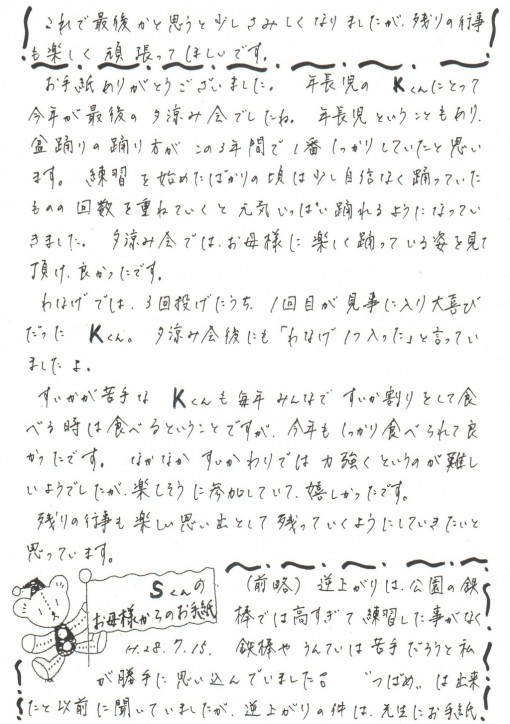 これで最後かと思うと少しさみしくなりましたが、残りの行事
も楽しく頑張ってほしいです。
お手紙ありがとうございました。 年長児の Kくんにとって
今年が最後の夕涼み会でしたね。 年長児ということもあり、
盆踊りの踊り方が この3年間で1番しっかりしていたと思い
ます。 練習を始めたばかりの頃は少し自信なく踊っていた
ものの回数を重ねていくと元気いっぱい踊れるようになってい
きました。 夕涼み会では、お母様に楽しく踊っている姿を見て
頂け、良かったです。
わなげでは、3回投げたうち、1回目が見事に入り大喜び
だった Kくん。 夕涼み会後にも「わなげ1つ入った」と言ってい
ましたよ。
すいかが苦手な Kくんも毎年みんなですいか割りをして食
べる時は食べるということですが、今年もしっかり食べられて良
かったです。 なかなかすいかわりでは力強くというのが難し
いようでしたが、楽しそうに参加していて、嬉しかったです。
残りの行事も楽しい思い出として残っていくようにしていきたいと
思っています。
Sくんの
お母様からのお手紙
H.28.7.15.
(前略) 逆上がりは、公園の鉄
棒では高すぎて練習した事がなく
鉄棒やうんていは苦手だろうと私
が勝手に思い込んでいました。 “つばめ”は出来
たと以前に聞いていましたが、逆上がりの件は、先生にお手紙、